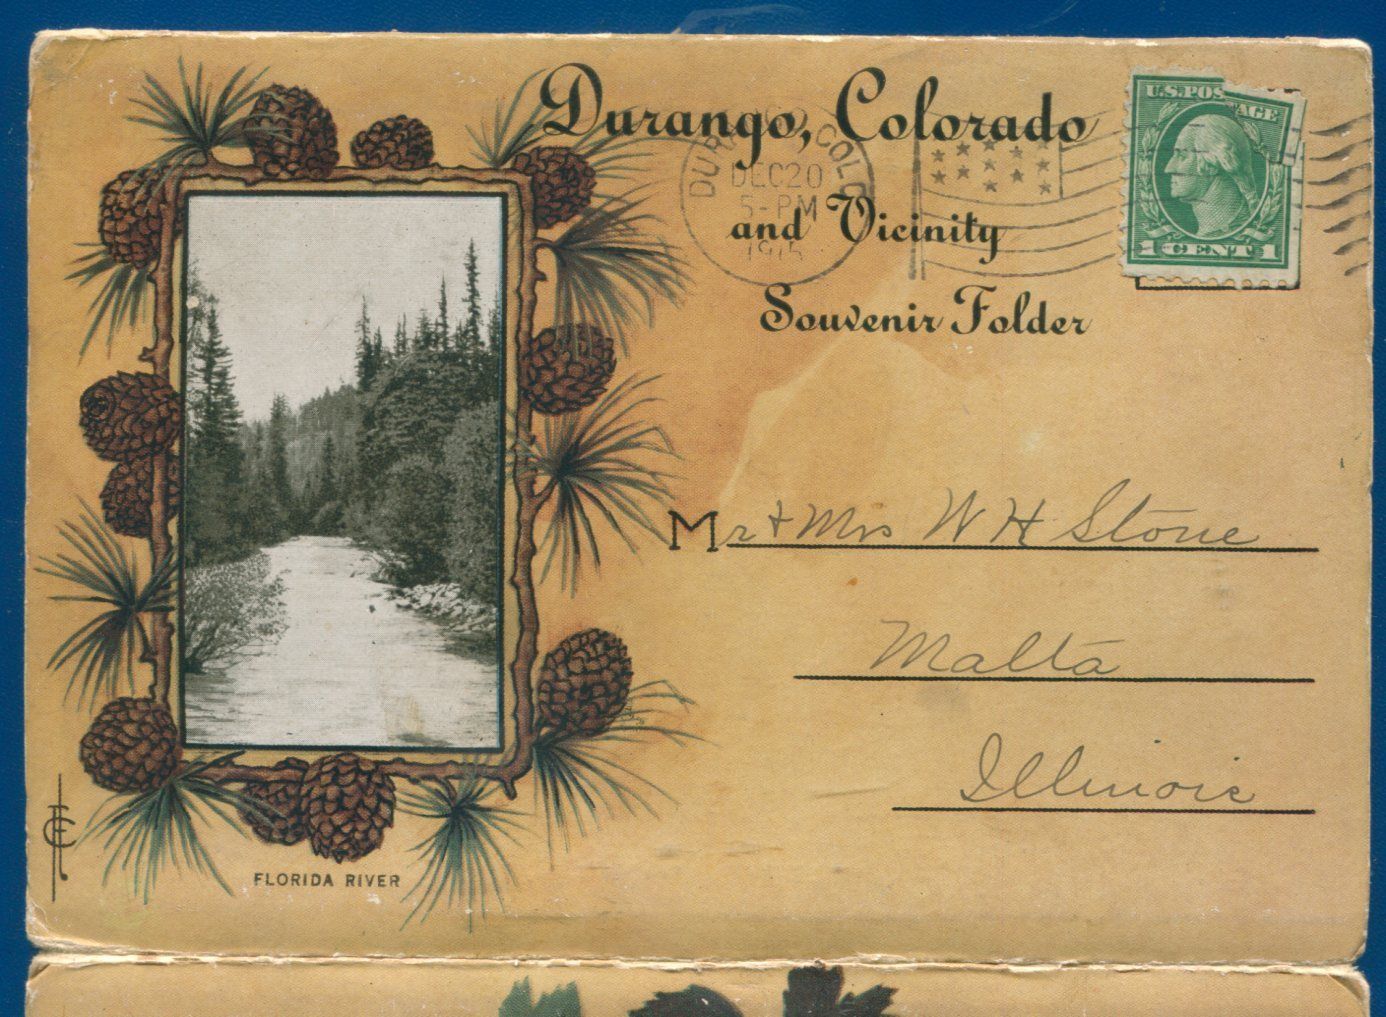 Durango, Colorado
and Vicinity
Souvenir Folder
DURANGO COLO.
DEC 20
5-PM
1915
U.S. POSTAGE
1 CENT 1
Mr & Mrs W H Stone
Malta
Illinois
FLORIDA RIVER